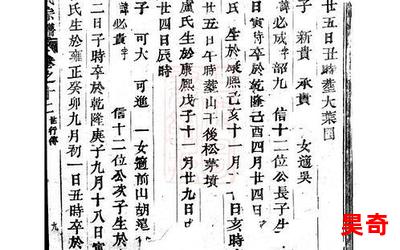 廿五日丑時葬大葉園
子 新貴 承貴 一女適吳
諱必咸字韶九 信十二位公長子生
日寅時卒於乾隆己酉四月廿四日
氏生於康熙己亥十一月 日亥時
廿五日午時葬山干後松茅墳
盧氏生於康熙戊子十一月廿九日
廿四日辰時
子 可大 可進 一女適前山胡
諱必貴字 信十二位公次子生於
二日子時卒於乾隆庚子九月十八日寅
氏生於雍正癸卯九月初一日丑時卒於
宗譜 卷之十二 行傳 九
昊奇